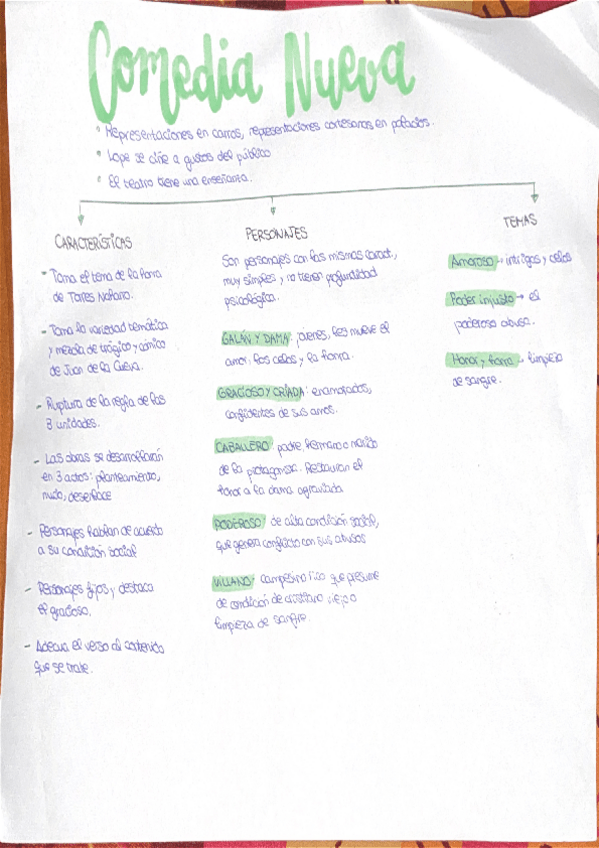 Comedia Nueva
• Representaciones en carros, representaciones cortesanas en palacios.
• Lope se ciñe a gustos del público
• El teatro tiene una enseñanza.
CARACTERÍSTICAS
- Toma el tema de la honra
de Torres Naharro.
- Toma la variedad temática
y mezcla de trágico y cómico
de Juan de la Cueva.
- Ruptura de la regla de las
3 unidades.
- Las obras se desarrollarán
en 3 actos: planteamiento,
nudo, desenlace
- Personajes hablan de acuerdo
a su condición social
- Personajes fijos y destaca
el gracioso.
- Adecua el verso al contenido
que se trate.
PERSONAJES
Son personajes con las mismas caract.,
muy simples y no tienen profundidad
psicológica.
GALÁN Y DAMA: jóvenes, les mueve el
amor, los celos y la honra.
GRACIOSO Y CRIADA: enamorados,
confidentes de sus amos.
CABALLERO: padre, hermano o marido
de la protagonista. Restauran el
honor a la dama agraviada
PODEROSO: de alta condición social,
que genera conflicto con sus abusos
VILLANO: campesino rico que presume
de condición de cristiano viejo o
limpieza de sangre.
TEMAS
Amoroso → intrigas y celos
Poder injusto → el
poderoso abusa.
Honor y honra → limpieza
de sangre.